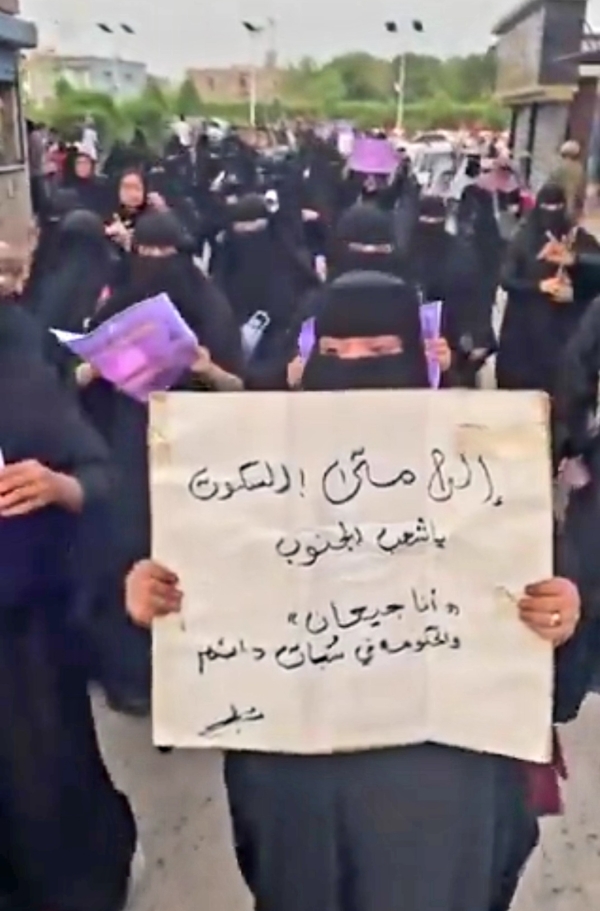 إلى متى السكوت
ياشعب الجنوب
"أنا جيعان"
والحكومه في سُبات دائم